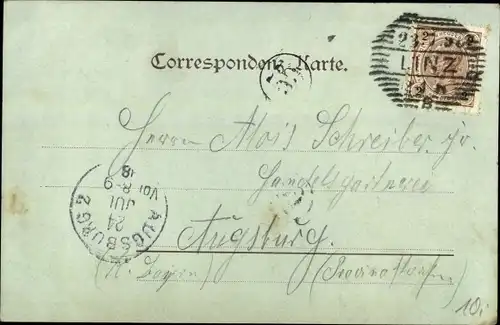 Correspondenz-Karte.
LINZ
Herrn Alois Schreiber jr.
Handelsgärtnerei
Augsburg.
(Bayern)
AUGSBURG 2
24
JUL
Vor 8-9
10.-